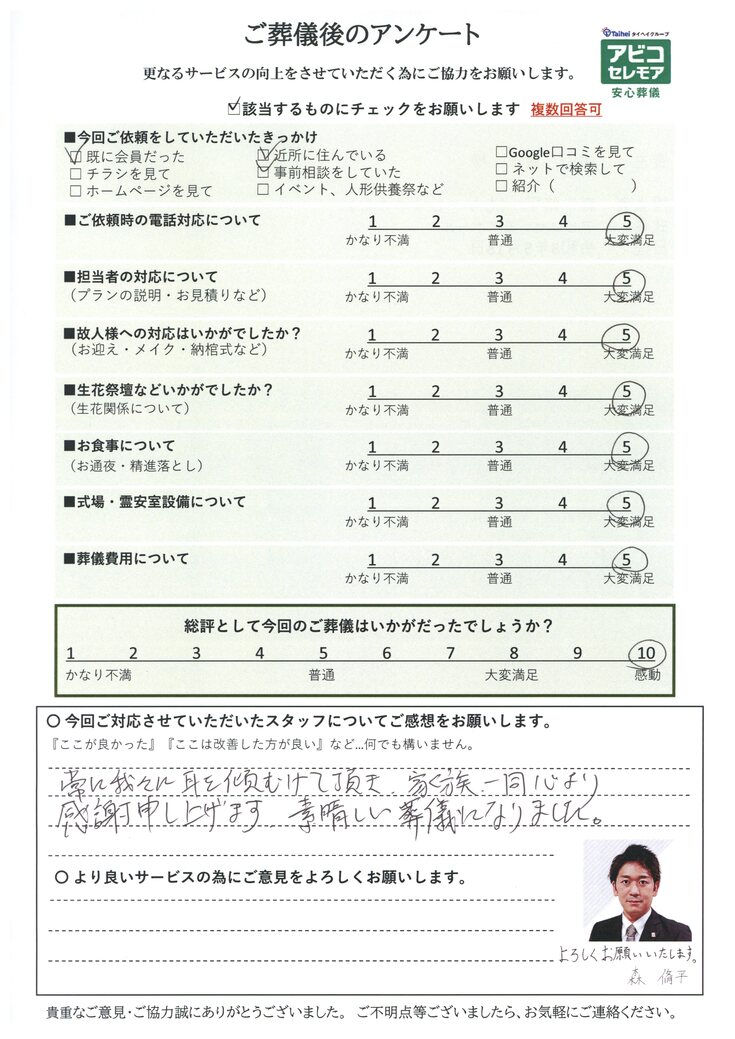 ご葬儀後のアンケート
Taihei タイヘイグループ
アビコ
セレモア
安心葬儀
更なるサービスの向上をさせていただく為にご協力をお願いします。
☑該当するものにチェックをお願いします 複数回答可
■今回ご依頼をしていただいたきっかけ
☑既に会員だった ☑近所に住んでいる □Google口コミを見て
□チラシを見て ☑事前相談をしていた □ネットで検索して
□ホームページを見て □イベント、人形供養祭など □紹介（ ）
■ご依頼時の電話対応について 1 2 3 4 5
かなり不満 普通 大変満足
■担当者の対応について 1 2 3 4 5
（プランの説明・お見積りなど） かなり不満 普通 大変満足
■故人様への対応はいかがでしたか？ 1 2 3 4 5
（お迎え・メイク・納棺式など） かなり不満 普通 大変満足
■生花祭壇などいかがでしたか？ 1 2 3 4 5
（生花関係について） かなり不満 普通 大変満足
■お食事について 1 2 3 4 5
（お通夜・精進落とし） かなり不満 普通 大変満足
■式場・霊安室設備について 1 2 3 4 5
かなり不満 普通 大変満足
■葬儀費用について 1 2 3 4 5
かなり不満 普通 大変満足
総評として今回のご葬儀はいかがだったでしょうか？
1 2 3 4 5 6 7 8 9 10
かなり不満 普通 大変満足 感動
〇 今回ご対応させていただいたスタッフについてご感想をお願いします。
『ここが良かった』『ここは改善した方が良い』など…何でも構いません。
常に我々に耳を傾むけて頂き、家族一同心より
感謝申し上げます。素晴しい葬儀になりました。
〇 より良いサービスの為にご意見をよろしくお願いします。
よろしくお願いいたします。
森
貴重なご意見・ご協力誠にありがとうございました。 ご不明点等ございましたら、お気軽にご連絡ください。